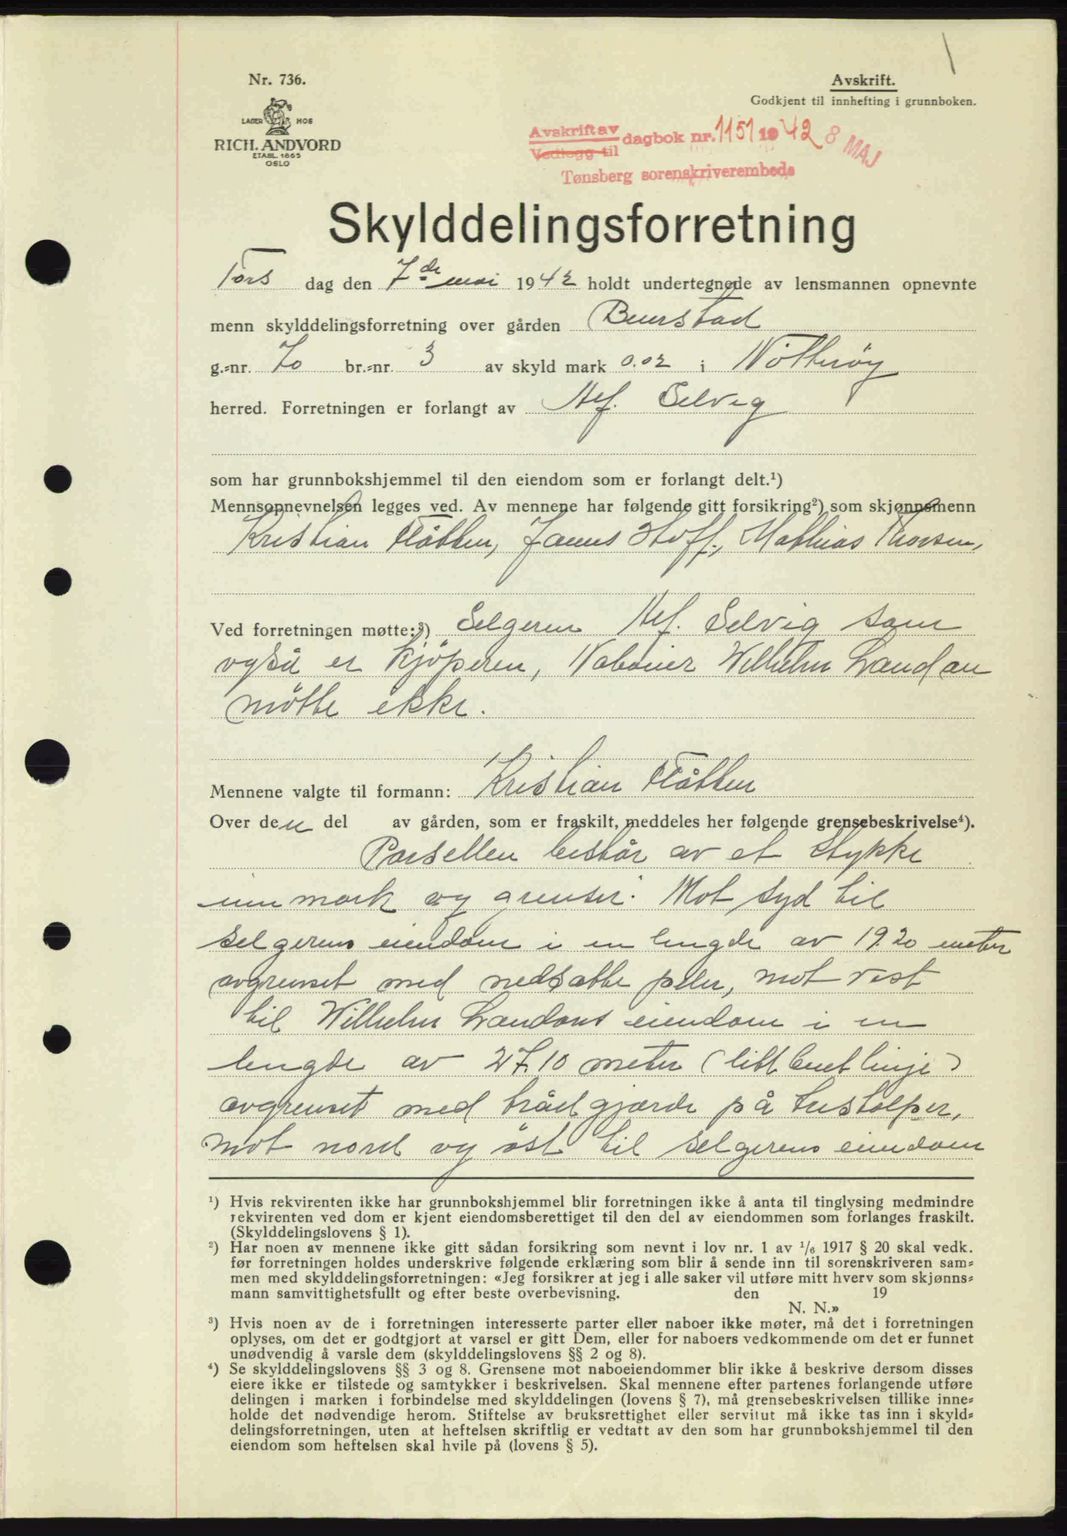 Nr. 736.
LAGER HOS
RICH. ANDVORD
ETABL. 1865
OSLO
Avskrift.
Godkjent til innhefting i grunnboken.
Avskrift av
Vedlegg til
dagbok nr. 1151 1942 8 MAJ
Tønsberg sorenskriverembede
Skylddelingsforretning
Tors dag den 7de mai 1942 holdt undertegnede av lensmannen opnevnte
menn skylddelingsforretning over gården Buerstad
g.=nr. 70 br.=nr. 3 av skyld mark 0.02 i Nøtterøy
herred. Forretningen er forlangt av Alf. Selvig
som har grunnbokshjemmel til den eiendom som er forlangt delt.¹)
Mennsopnevnelsen legges ved. Av mennene har følgende gitt forsikring²) som skjønnsmenn
Kristian Flåtten, James Hoff, Mathias Thorsen,
Ved forretningen møtte:³) Selgeren Alf. Selvig som
også er kjøperen, Naboeier Wilhelm Landan
møtte ikke.
Mennene valgte til formann: Kristian Flåtten
Over den del av gården, som er fraskilt, meddeles her følgende grensebeskrivelse⁴).
Parsellen består av et stykke
inn mark og grenser: Mot syd til
selgerens eiendom i en lengde av 19.20 meter
avgrenset med nedsatte peler, mot vest
til Wilhelm Landans eiendom i en
lengde av 27.10 meter (litt buet linje)
avgrenset med trådgjærde på trestolper,
mot nord og øst til selgerens eiendom
¹) Hvis rekvirenten ikke har grunnbokshjemmel blir forretningen ikke å anta til tinglysing medmindre
rekvirenten ved dom er kjent eiendomsberettiget til den del av eiendommen som forlanges fraskilt.
(Skylddelingslovens § 1).
²) Har noen av mennene ikke gitt sådan forsikring som nevnt i lov nr. 1 av 1/6 1917 § 20 skal vedk.
før forretningen holdes underskrive følgende erklæring som blir å sende inn til sorenskriveren sam=
men med skylddelingsforretningen: «Jeg forsikrer at jeg i alle saker vil utføre mitt hverv som skjønns=
mann samvittighetsfullt og efter beste overbevisning. den 19
N. N.»
³) Hvis noen av de i forretningen interesserte parter eller naboer ikke møter, må det i forretningen
oplyses, om det er godtgjort at varsel er gitt Dem, eller for naboers vedkommende om det er funnet
unødvendig å varsle dem (skylddelingslovens §§ 2 og 8).
⁴) Se skylddelingslovens §§ 3 og 8. Grensene mot naboeiendommer blir ikke å beskrive dersom disses
eiere ikke er tilstede og samtykker i beskrivelsen. Skal mennene efter partenes forlangende utføre
delingen i marken i forbindelse med skylddelingen (lovens § 7), må grensebeskrivelsen tillike inne=
holde det nødvendige herom. Stiftelse av bruksrettighet eller servitut må ikke tas inn i skyld=
delingsforretningen, uten at heftelsen skriftlig er vedtatt av den som har grunnbokshjemmel til den
eiendom som heftelsen skal hvile på (lovens § 5).